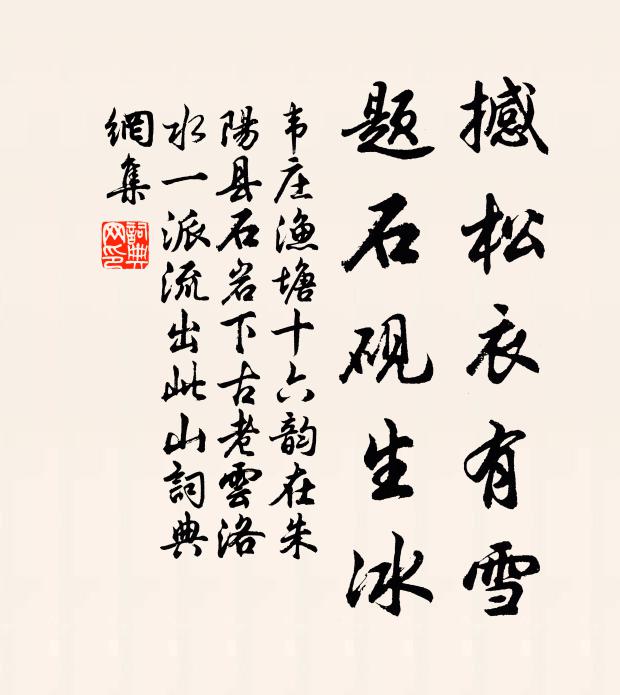 撼松衣有雪
题石砚生冰
韦庄渔塘十六韵在朱
陽县石岩下古老雲洛
水一派流出此山詞典
網集
詞典网印